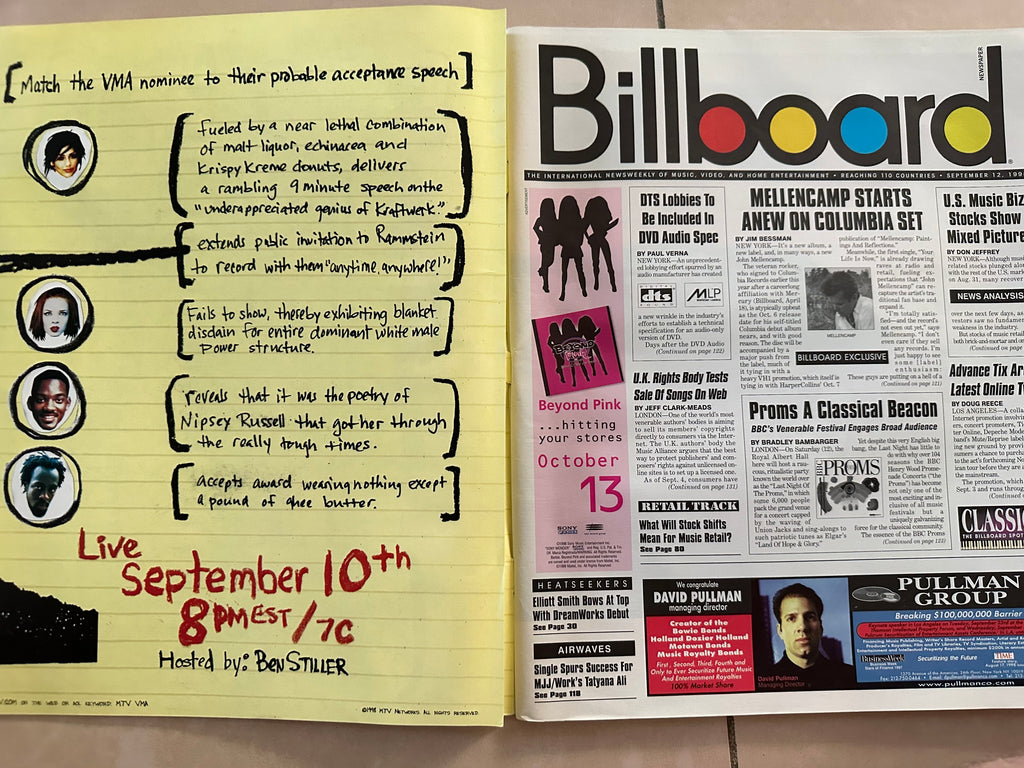 [Match the VMA nominee to their probable acceptance speech]
fueled by a near lethal combination
of malt liquor, echinacea and
Krispy Kreme donuts, delivers
a rambling 9 minute speech on the
"underappreciated genius of Kraftwerk."
extends public invitation to Rammstein
to record with them "anytime, anywhere!"
Fails to show, thereby exhibiting blanket
disdain for entire dominant white male
power structure.
reveals that it was the poetry of
Nipsey Russell that got her through
the really tough times.
accepts award wearing nothing except
a pound of ghee butter.
Live
September 10th
8PM EST/7C
Hosted by: BEN STILLER
ON THE WEB OR AOL KEYWORD: MTV VMA
©1998 MTV NETWORKS. ALL RIGHTS RESERVED.
Billboard
NEWSPAPER
THE INTERNATIONAL NEWSWEEKLY OF MUSIC, VIDEO, AND HOME ENTERTAINMENT • REACHING 110 COUNTRIES • SEPTEMBER 12, 199
ADVERTISEMENT
BEYOND
PINK
Beyond Pink
...hitting
your stores
October
13
SONY
DTS Lobbies To
Be Included In
DVD Audio Spec
BY PAUL VERNA
NEW YORK—An unprecedented
lobbying effort spurred by an
audio manufacturer has created
dts MLP
a new wrinkle in the industry's
efforts to establish a technical
specification for an audio-only
version of DVD.
Days after the DVD Audio
(Continued on page 122)
U.K. Rights Body Tests
Sale Of Songs On Web
BY JEFF CLARK-MEADS
LONDON—One of the world's most
venerable authors' bodies is aiming
to sell its members' copyrights
directly to consumers via the Internet.
The U.K. authors' body the
Music Alliance argues that the best
way to protect publishers' and composers'
rights against unlicensed online
sites is to set up a licensed one.
As of Sept. 4, consumers have
(Continued on page 131)
RETAIL TRACK
What Will Stock Shifts
Mean For Music Retail?
See Page 80
HEATSEEKERS
Elliott Smith Bows At Top
With DreamWorks Debut
See Page 30
AIRWAVES
Single Spurs Success For
MJJ/Work's Tatyana Ali
See Page 118
MELLENCAMP STARTS
ANEW ON COLUMBIA SET
BY JIM BESSMAN
NEW YORK—It's a new album, a
new label, and, in many ways, a new
John Mellencamp.
The veteran rocker,
who signed to Columbia
Records earlier this
year after a career-long
affiliation with Mercury
(Billboard, April
18), is atypically upbeat
as the Oct. 6 release
date for his self-titled
Columbia debut album
nears, and with good
reason. The disc will be
accompanied by a
major push from the
label, much of
it tying in with a
heavy VH1 promotion, which itself is
tying in with HarperCollins' Oct. 7
publication of "Mellencamp: Paintings
And Reflections."
Meanwhile, the first single, "Your
Life Is Now," is already drawing
raves at radio and
retail, fueling expectations
that "John
Mellencamp" can
recapture the artist's
traditional fan base and
expand it.
"I'm totally satisfied—and
the record's
not even out yet," says
Mellencamp. "I don't
even care if they sell
any records. I'm
just happy to see
some [label]
enthusiasm:
These guys are putting on a hell of a
(Continued on page 121)
MELLENCAMP
BILLBOARD EXCLUSIVE
Proms A Classical Beacon
BBC's Venerable Festival Engages Broad Audience
BY BRADLEY BAMBARGER
LONDON—On Saturday (12), the
Royal Albert Hall
here will host a raucous,
ritualistic party
known the world over
as the "Last Night Of
The Proms," in which
some 6,000 people
pack the grand venue
for a concert capped
by the waving of
Union Jacks and sing-alongs to
such patriotic tunes as Elgar's
"Land Of Hope & Glory."
BBC PROMS
Yet despite this very English big
bang, the Last Night has little to
do with why over 104
seasons the BBC
Henry Wood Promenade
Concerts ("The
Proms") has become
not only one of the
most exciting and inclusive
of all music
festivals but a
uniquely galvanizing
force for the classical community.
The essence of the BBC Proms
(Continued on page 123)
U.S. Music Biz
Stocks Show
Mixed Picture
BY DON JEFFREY
NEWS ANALYSIS
Advance Tix
Latest Online
BY DOUG REECE
CLASSIC
THE BILLBOARD SPOT
We congratulate
DAVID PULLMAN
managing director
Creator of the
Bowie Bonds
Holland Dozier Holland
Motown Bonds
Music Royalty Bonds
First, Second, Third, Fourth and
Only to Ever Securitize Future Music
And Entertainment Royalties
100% Market Share
David Pullman
Managing Director
PULLMAN
GROUP
Breaking $100,000,000 Barrier
BusinessWeek
Securitizing the Future
TIME
www.pullmanco.com